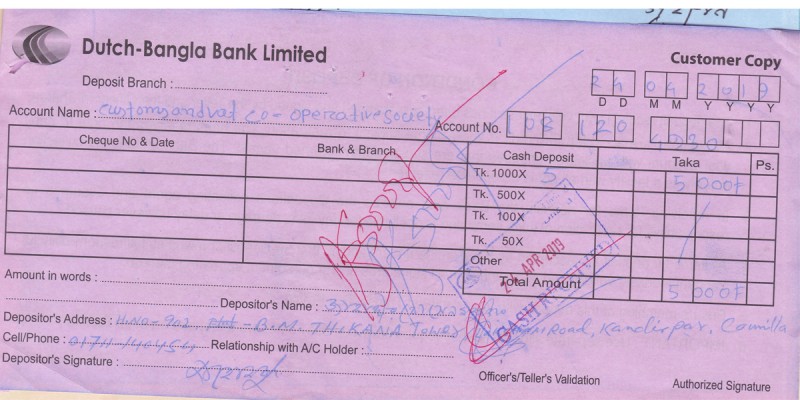 Dutch-Bangla Bank Limited
Customer Copy
Deposit Branch :
24 04 2019
D D M M Y Y Y Y
Account Name : customs and vat co-operative society
Account No. 108 120
Cheque No & Date Bank & Branch Cash Deposit Taka Ps.
Tk. 1000X 5 5000/-
Tk. 500X
Tk. 100X
Tk. 50X
Other
Total Amount 5000/-
24 APR 2019
CASH RECEIVED
Amount in words :
Depositor's Name :
Depositor's Address : H.No- 902, B.M THIKANA Tower, Road, Kandirpar, Comilla
Cell/Phone : Relationship with A/C Holder :
Depositor's Signature :
Officer's/Teller's Validation
Authorized Signature